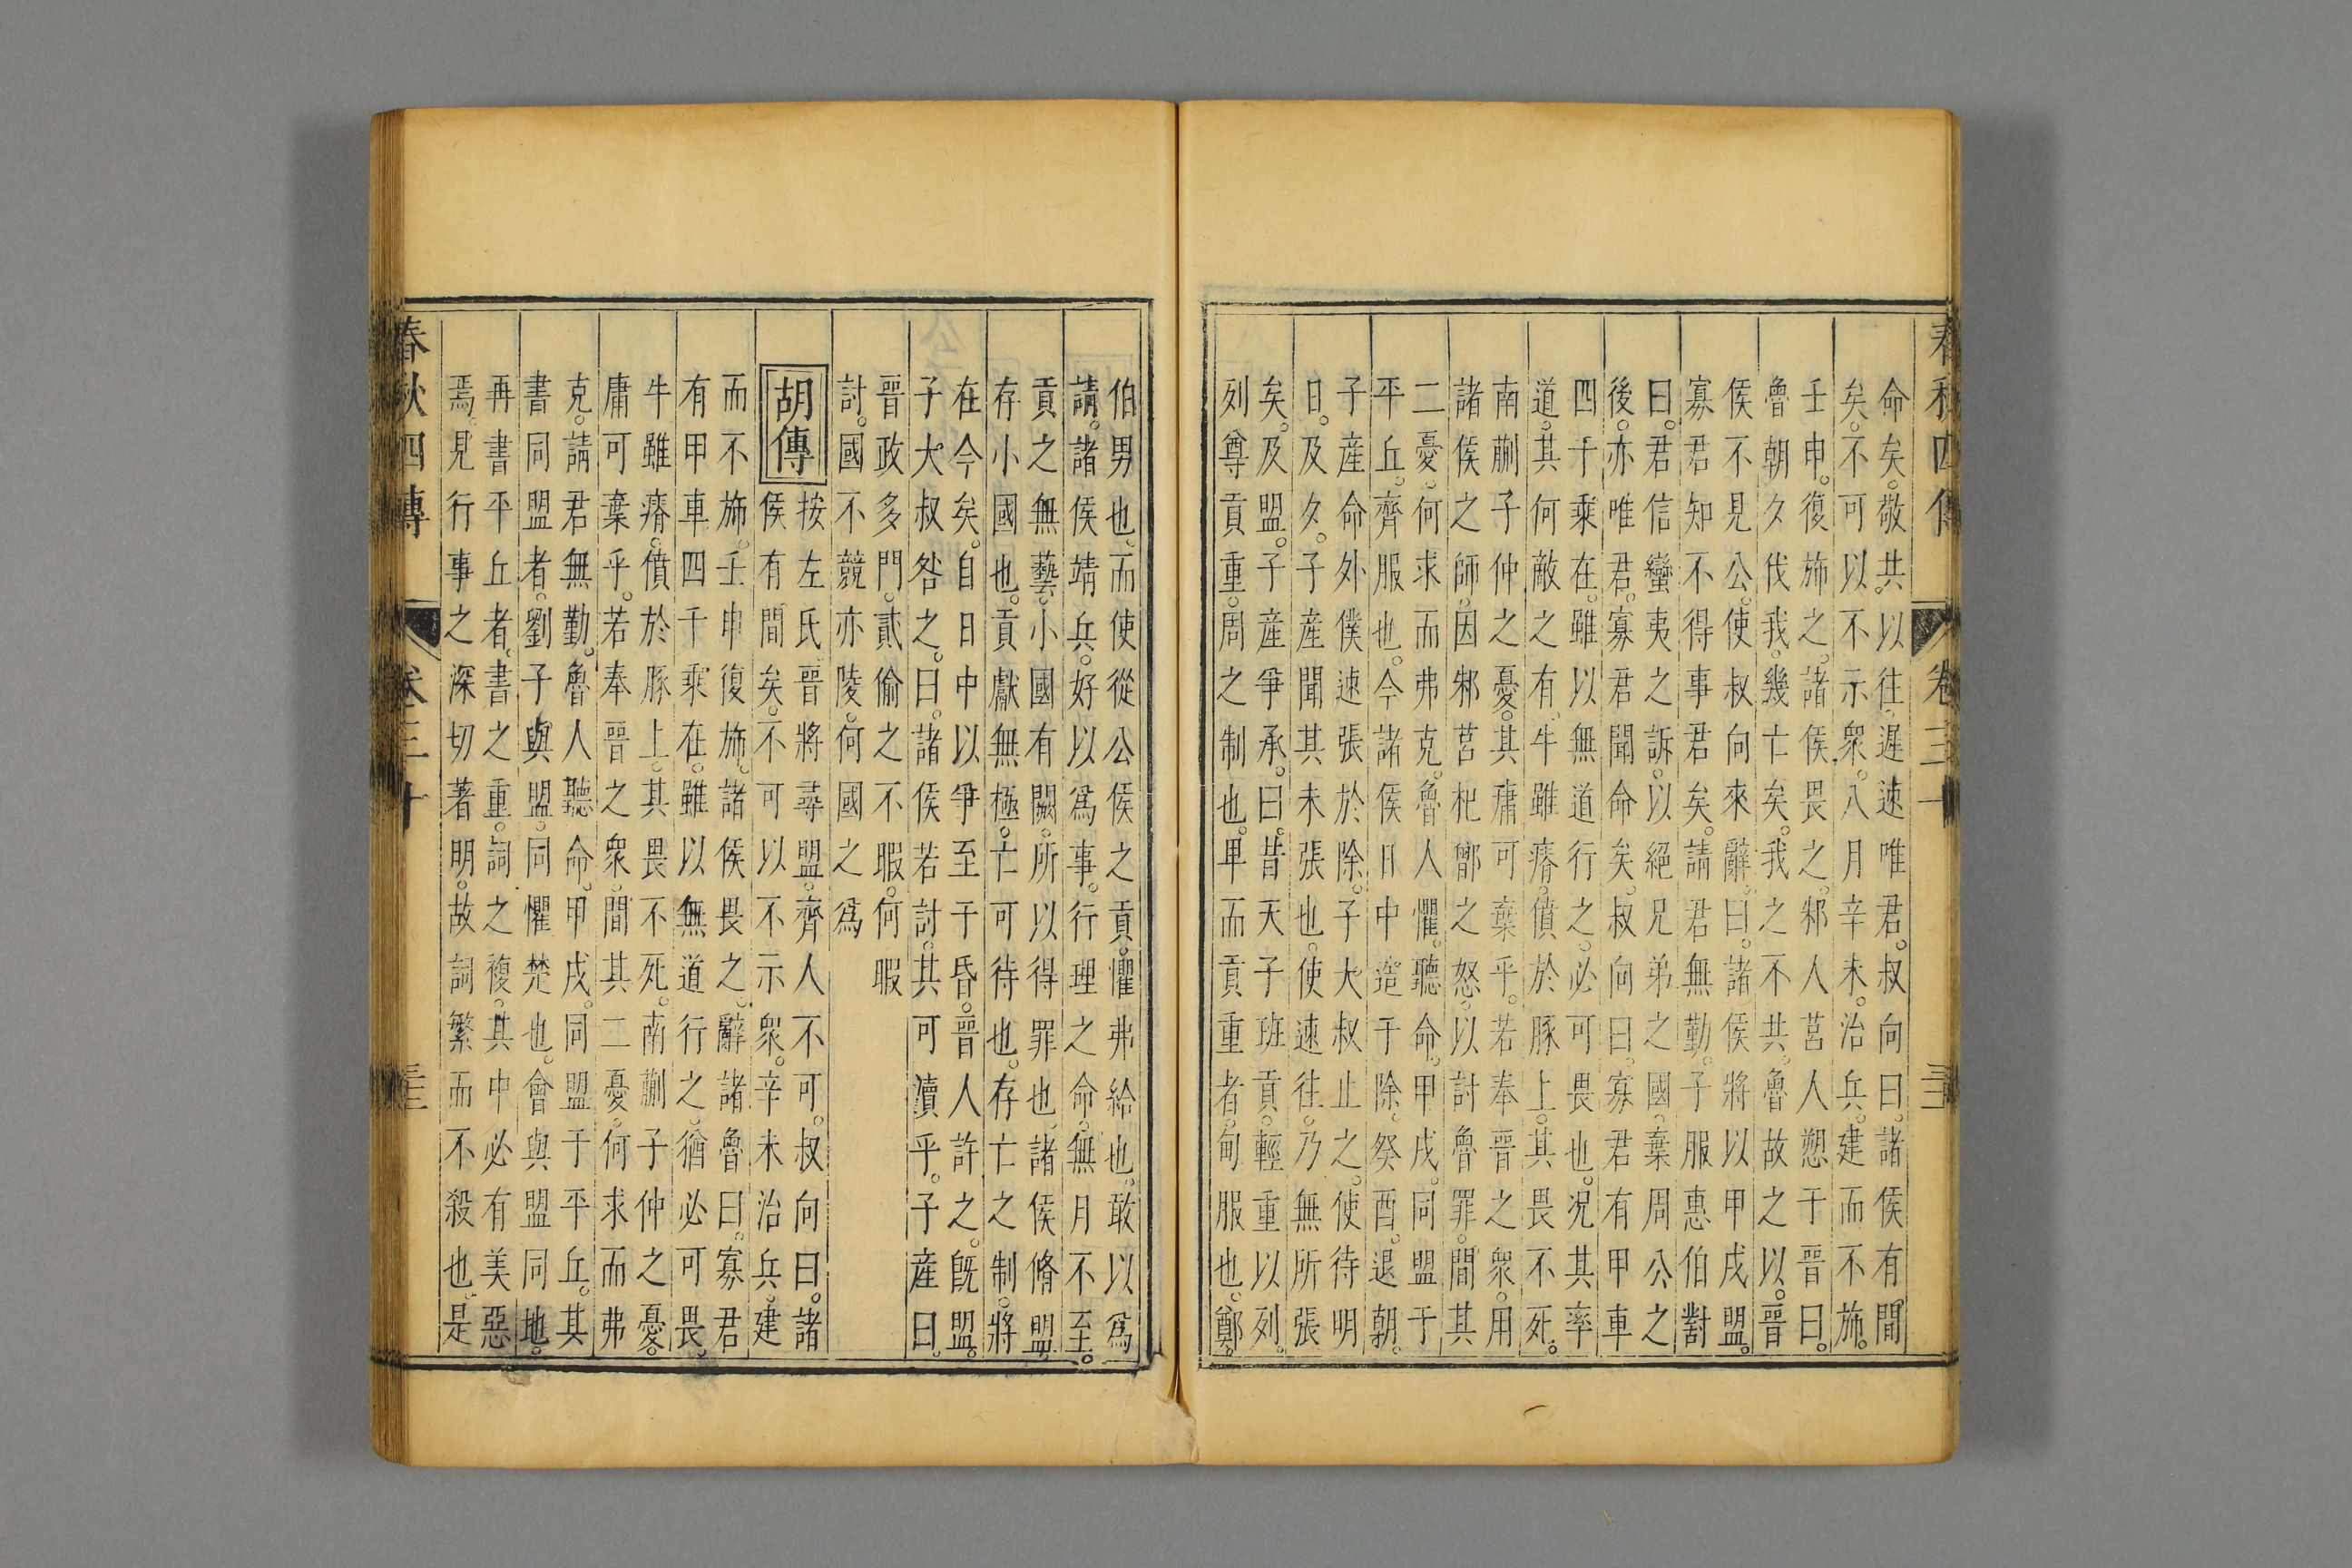 春秋四傳 卷三十
命矣。敬共。以往。遲速唯君。叔向曰。諸侯有間
矣。不可以不示衆。八月辛未。治兵。建而不施。
壬申。復施之。諸侯畏之。邾人莒人愬于晉曰。
魯朝夕伐我。幾亡矣。我之不共。魯故之以。晉
侯不見公。使叔向來辭。曰。諸侯將以甲戌盟。
寡君知不得事君矣。請君無勤。子服惠伯對
曰。君信蠻夷之訴。以絕兄弟之國。棄周公之
後。亦唯君。寡君聞命矣。叔向曰。寡君有甲車
四千乘在。雖以無道行之。必可畏也。况其率
道。其何敵之有。牛雖瘠。僨於豚上。其畏不死。
南蒯子仲之憂。其庸可棄乎。若奉晉之衆。用
諸侯之師。因邾莒杞鄫之怒。以討魯罪。間其
二憂。何求而弗克。魯人懼。聽命。甲戌。同盟于
平丘。齊服也。今諸侯日中造于除。癸酉。退朝。
子産命外僕速張於除。子大叔止之。使待明
日。及夕。子産聞其未張也。使速往。乃無所張
矣。及盟。子産爭承。曰。昔天子班貢。輕重以列。
列尊貢重。周之制也。卑而貢重者。甸服也。鄭。
伯男也。而使從公侯之貢。懼弗給也。敢以爲
請。諸侯靖兵。好以爲事。行理之命。無月不至。
貢之無藝。小國有闕。所以得罪也。諸侯脩盟。
存小國也。貢獻無極。亡可待也。存亡之制。將
在今矣。自日中以爭至于昏。晉人許之。旣盟。
子大叔咎之。曰。諸侯若討。其可瀆乎。子産曰。
晉政多門。貳偷之不暇。何暇
討。國不競亦陵。何國之爲
胡傳
按左氏。晉將尋盟。齊人不可。叔向曰。諸
侯有間矣。不可以不示衆。辛未治兵。建
而不施。壬申復施。諸侯畏之。辭諸魯曰。寡君
有甲車四千乘在。雖以無道行之。猶必可畏。
牛雖瘠。僨於豚上。其畏不死。南蒯子仲之憂。
庸可棄乎。若奉晉之衆。間其二憂。何求而弗
克。請君無勤。魯人聽命。甲戌。同盟于平丘。其
書同盟者。劉子與盟。同懼楚也。會與盟同地。
再書平丘者。書之重。詞之複。其中必有美惡
焉。見行事之深切著明。故詞繁而不殺也。是
春秋四傳 卷三十